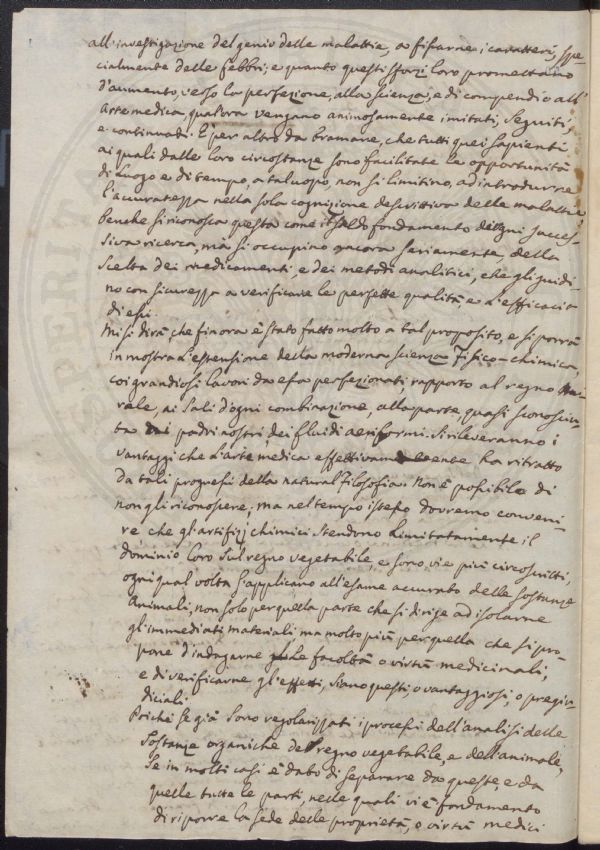 all'investigazione del genio delle malattie, a fissarne i caratteri, spe-
cialmente delle febbri, e quanto questi sforzi loro promettano
d'aumento, verso la perfezione, alla scienza, e di compendio all'
Arte medica, qualora vengano animosamente imitati, seguiti,
e continuati. È per altro da bramare, che tutti quei sapienti
ai quali dalle loro circostanze sono facilitate le opportunità
di luogo e di tempo, a tal uopo, non si limitino, ad introdurre
l'accuratezza nella sola cognizione descrittiva delle malattie
benche si riconosca questa come il saldo fondamento d'ogni succes-
siva ricerca, ma si occupino ancora seriamente, della
scelta dei medicamenti, e dei metodi analitici, che gli guidi-
no con sicurezza a verificare le perfette qualità, e l'efficacia
di essi.
Mi si dirà, che finora è stato fatto molto a tal proposito, e si porrà
in mostra l'estensione della moderna scienza Fisico-chimica,
coi grandiosi lavori da essa perfezionati, rapporto al regno Mine
rale, ai Sali d'ogni combinazione, alla parte, quasi sconosciu-
ta dai padri nostri, dei fluidi aeriformi. Si rileveranno i
vantaggi che l'arte medica effettivamente ha ritratto
da tali progressi della natural Filosofia. Non è possibile di
non gli riconoscere; ma nel tempo istesso dovremo conveni-
re che gli artifizj chimici stendono limitatamente, il
dominio loro sul regno vegetabile, e sono, vie più circoscritti,
ogni qual volta s'applicano all'esame accurato delle sostanze
Animali, non solo per quella parte che si dirige ad isolarne
gl'immediati materiali, ma molto più per quella che si pro-
pone d'indagarne le facoltà o virtù medicinali,
e di verificarne gl'effetti, siano questi o vantaggiosi, o pregiu-
diciali.
Poiché se già sono regolarizzati i processi dell'analisi delle
sostanze organiche del regno vegetabile, e dell'animale,
se in molti casi è dato di separare da queste, e da
quelle tutte le parti, nelle quali vi è fondamento
di riporre la sede delle proprietà, o virtù medici